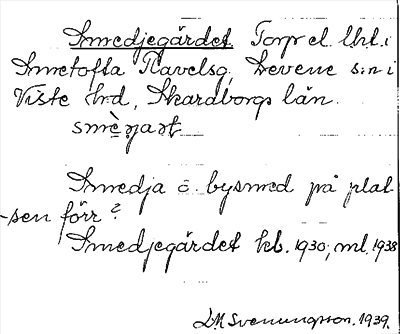 Smedjegärdet. Torp el. lht. i
Smetofta Stavelsg, Levene sn i
Viste hd, Skaraborgs län.
Smedja o. bysmed på plat-
sen förr?
Smedjegärdet hb. 1930; ml. 1938
Svenungsson. 1939.